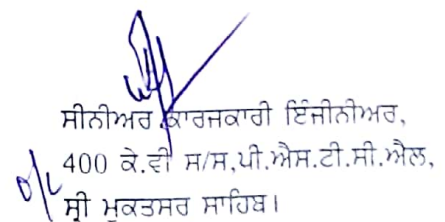 ਸੀਨੀਅਰ ਕਾਰਜਕਾਰੀ ਇੰਜੀਨੀਅਰ,
400 ਕੇ.ਵੀ ਸ/ਸ,ਪੀ.ਐਸ.ਟੀ.ਸੀ.ਐਲ,
ਸ੍ਰੀ ਮੁਕਤਸਰ ਸਾਹਿਬ।